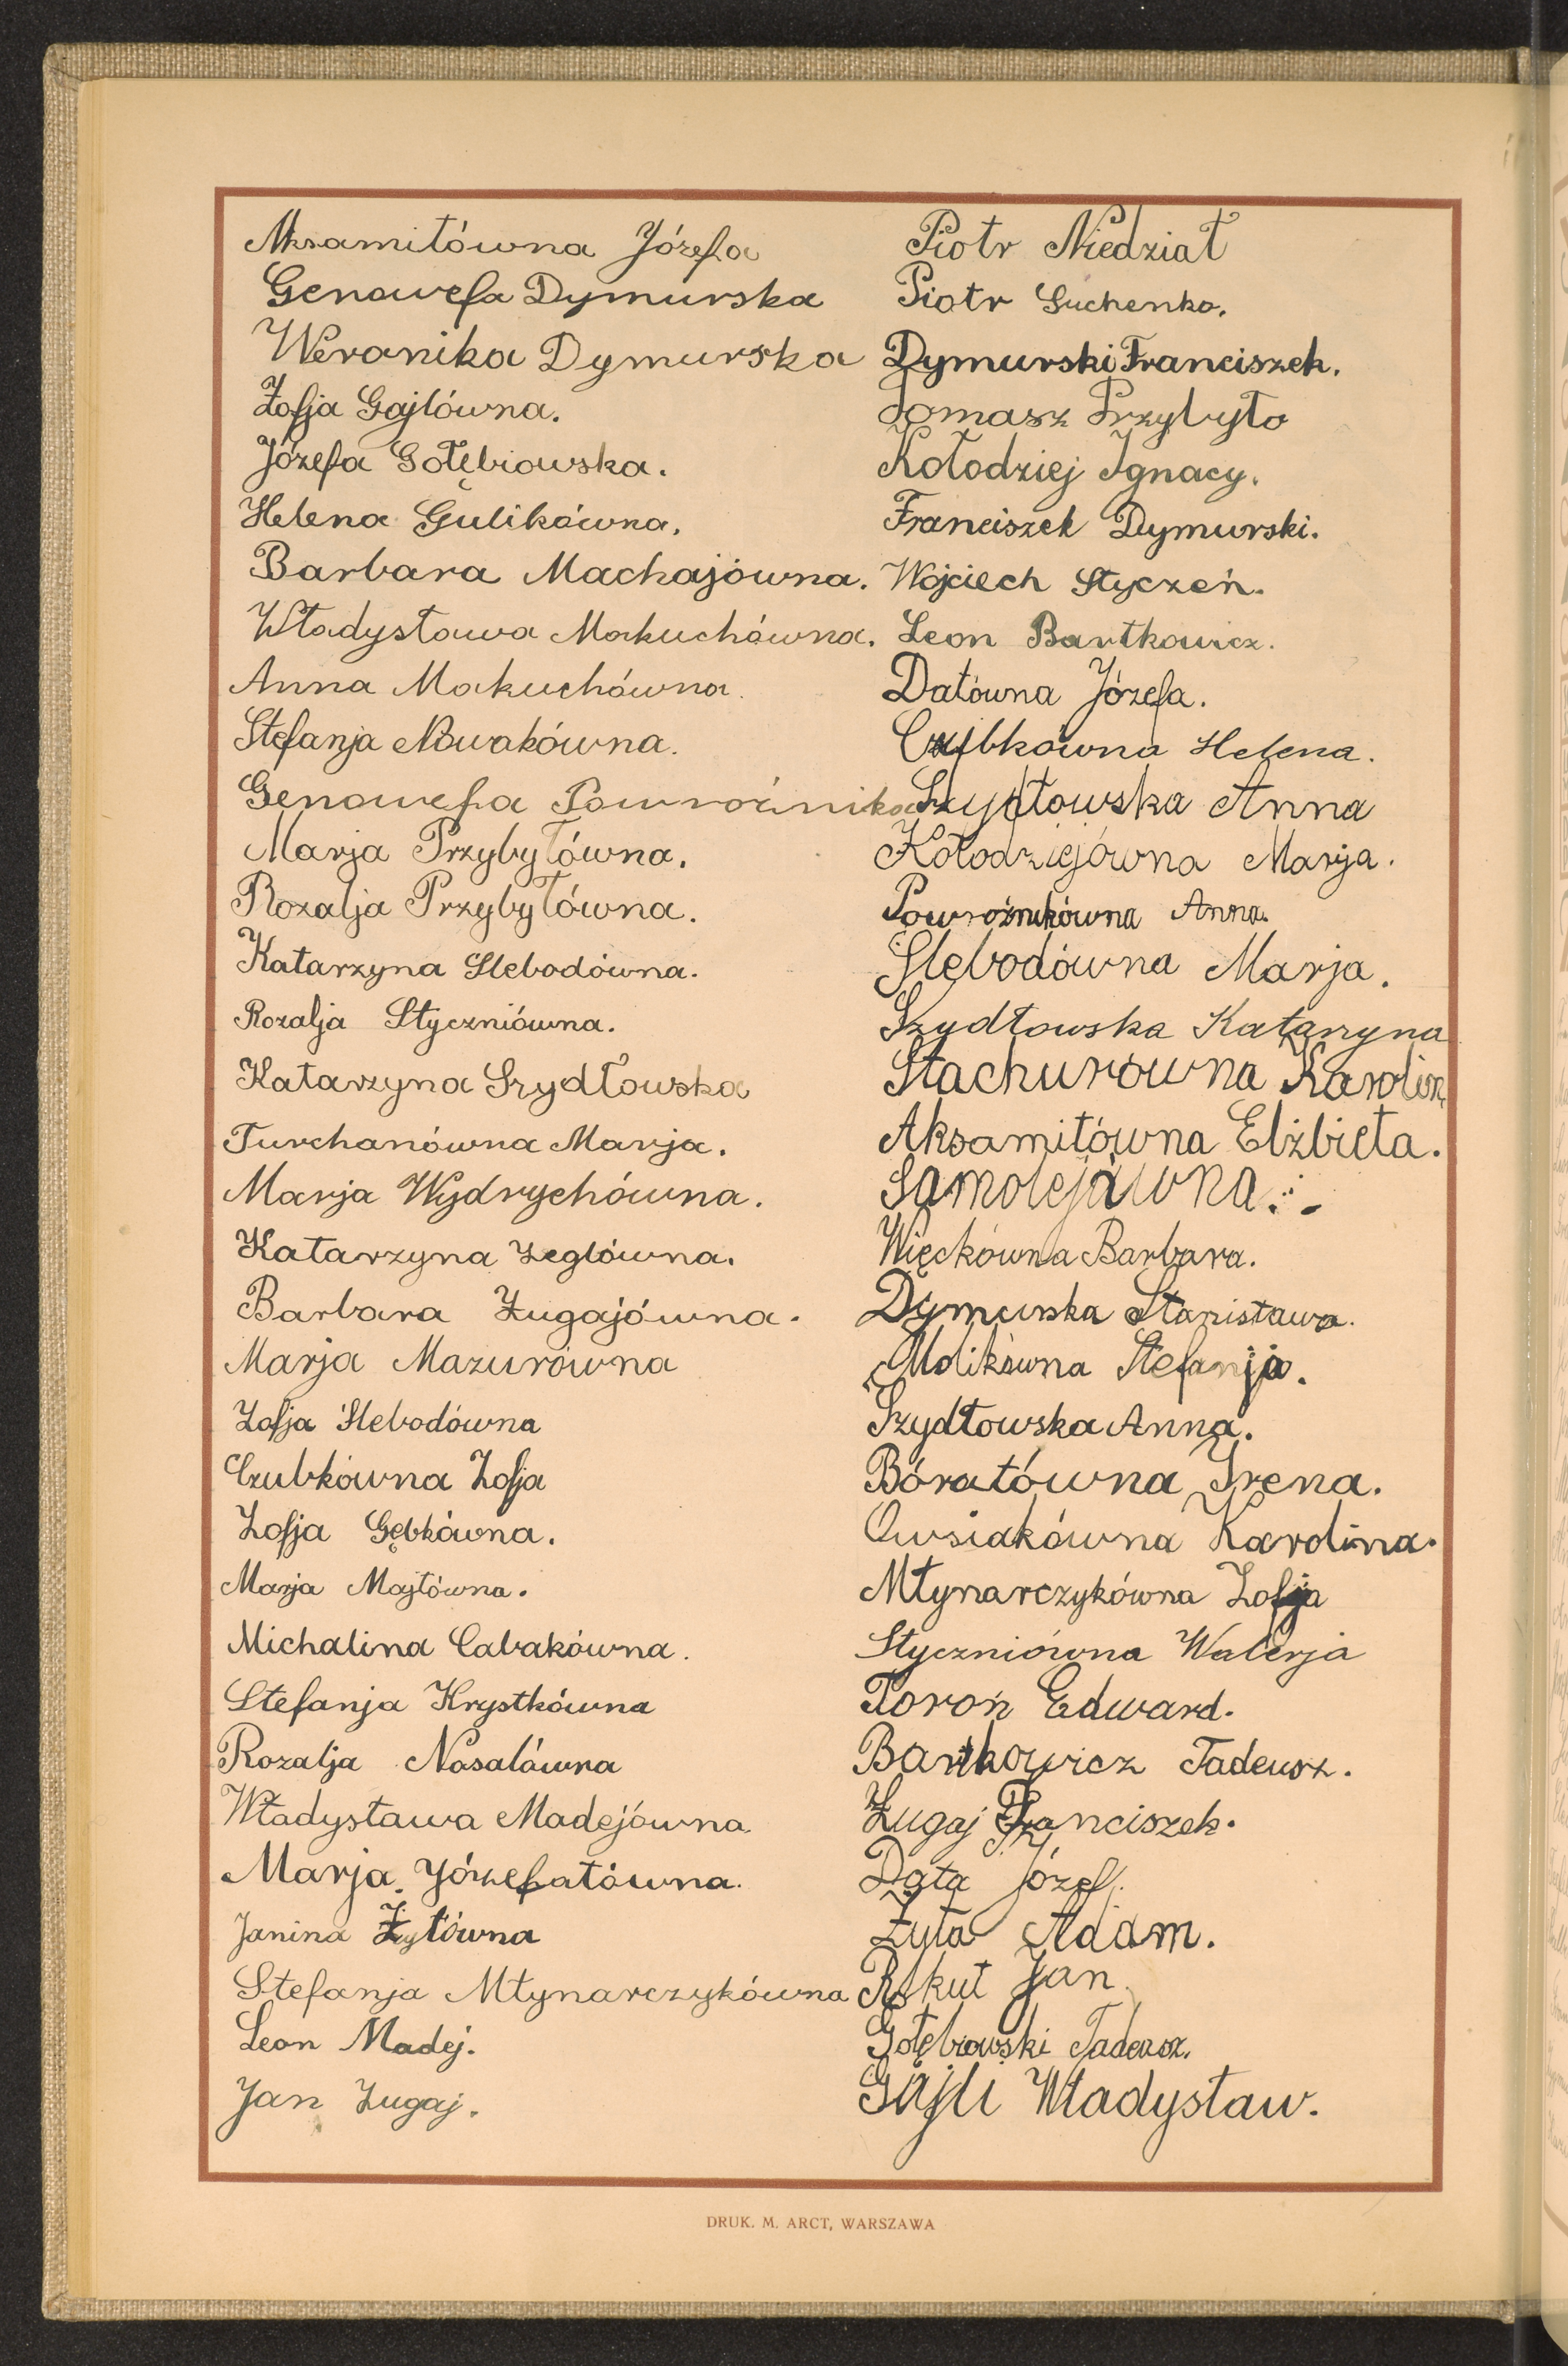 Aksamitówna Józefa
Genowefa Dymurska
Weronika Dymurska
Zofja Gajlówna.
Józefa Gołębiowska.
Helena Gulikówna.
Barbara Machajówna.
Władysława Makuchówna.
Anna Makuchówna.
Stefanja Nowakówna.
Genowefa
Marja Przybyłówna.
Rozalja Przybyłówna.
Katarzyna Slebodówna.
Rozalja Styczniówna.
Katarzyna Szydłowska
Turchanówna Marja.
Marja Wydrychówna.
Katarzyna Żeglówna.
Barbara Zugajówna.
Marja Mazurówna
Zofja Slebodówna
Czubkówna Zofja
Zofja Gębkówna.
Marja Majłówna.
Michalina Cabakówna.
Stefanja Krystkówna
Rozalja Nosalówna
Władysława Madejówna
Marja Józefatówna.
Janina Żyłówna
Stefanja Młynarczykówna
Leon Madej.
Jan Zugaj.
Piotr Niedział
Piotr Suchenko.
Dymurski Franciszek.
Tomasz Przybyło
Kołodziej Ignacy.
Franciszek Dymurski.
Wojciech Styczeń.
Leon Bartkowicz.
Datówna Józefa.
Czubkówna Helena.
Szydłowska Anna
Kołodziejówna Marja.
Powroźnikówna Anna.
Slebodówna Marja.
Szydłowska Katarzyna
Stachurówna Karolina
Aksamitówna Elżbieta.
Samolejówna.
Więckówna Barbara.
Dymurska Stanisława.
Molikówna Stefanja.
Szydłowska Anna.
Bóratówna Irena.
Owsiakówna Karolina.
Młynarczykówna Zofja
Styczniówna Walerja
Toroń Edward.
Bartkowicz Tadeusz.
Zugaj Franciszek.
Data Józef.
Żyła Adam.
Rokut Jan
Gołębiowski Tadeusz.
Gajli Władysław.
DRUK. M. ARCT, WARSZAWA